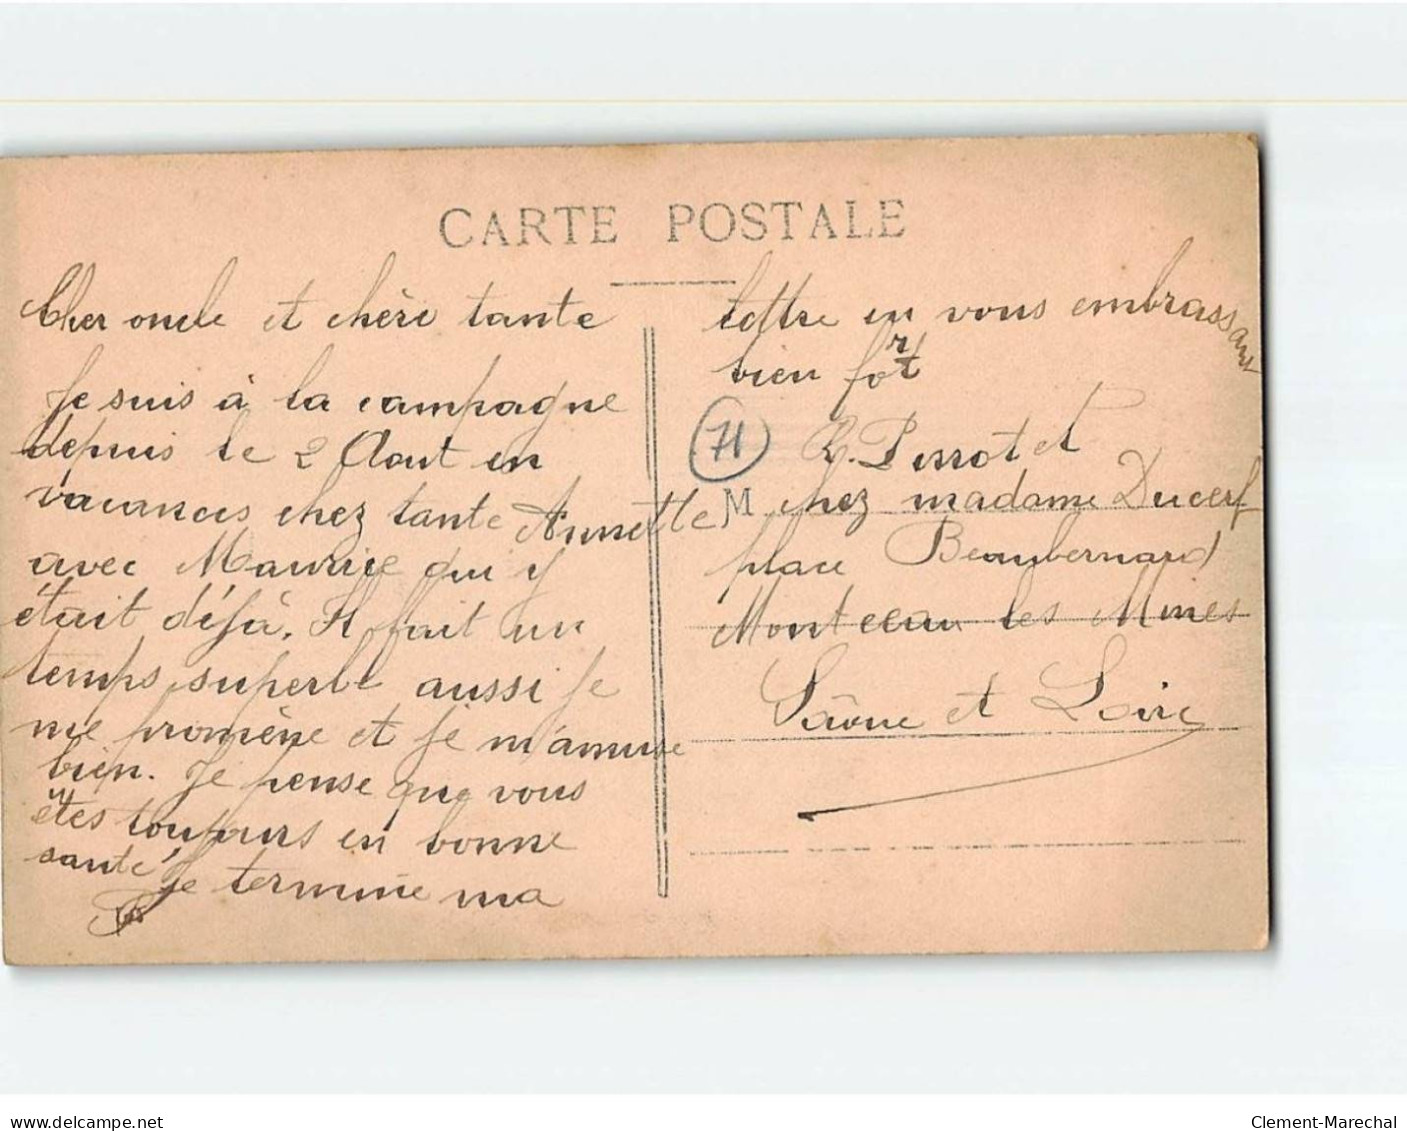 CARTE POSTALE
Cher oncle et chère tante
Je suis à la campagne
depuis le 2 Aout en
vacances chez tante Annette
avec Maurice qui y
était déjà. Il fait un
temps superbe aussi je
me promène et je m'amuse
bien. Je pense que vous
êtes toujours en bonne
santé, je termine ma
lettre en vous embrassant
bien fort
71
Perrot et
M chez madame Ducerf
place Beaubernard
Montceau les Mines
Saône et Loire
delcampe.net
Clement-Marechal